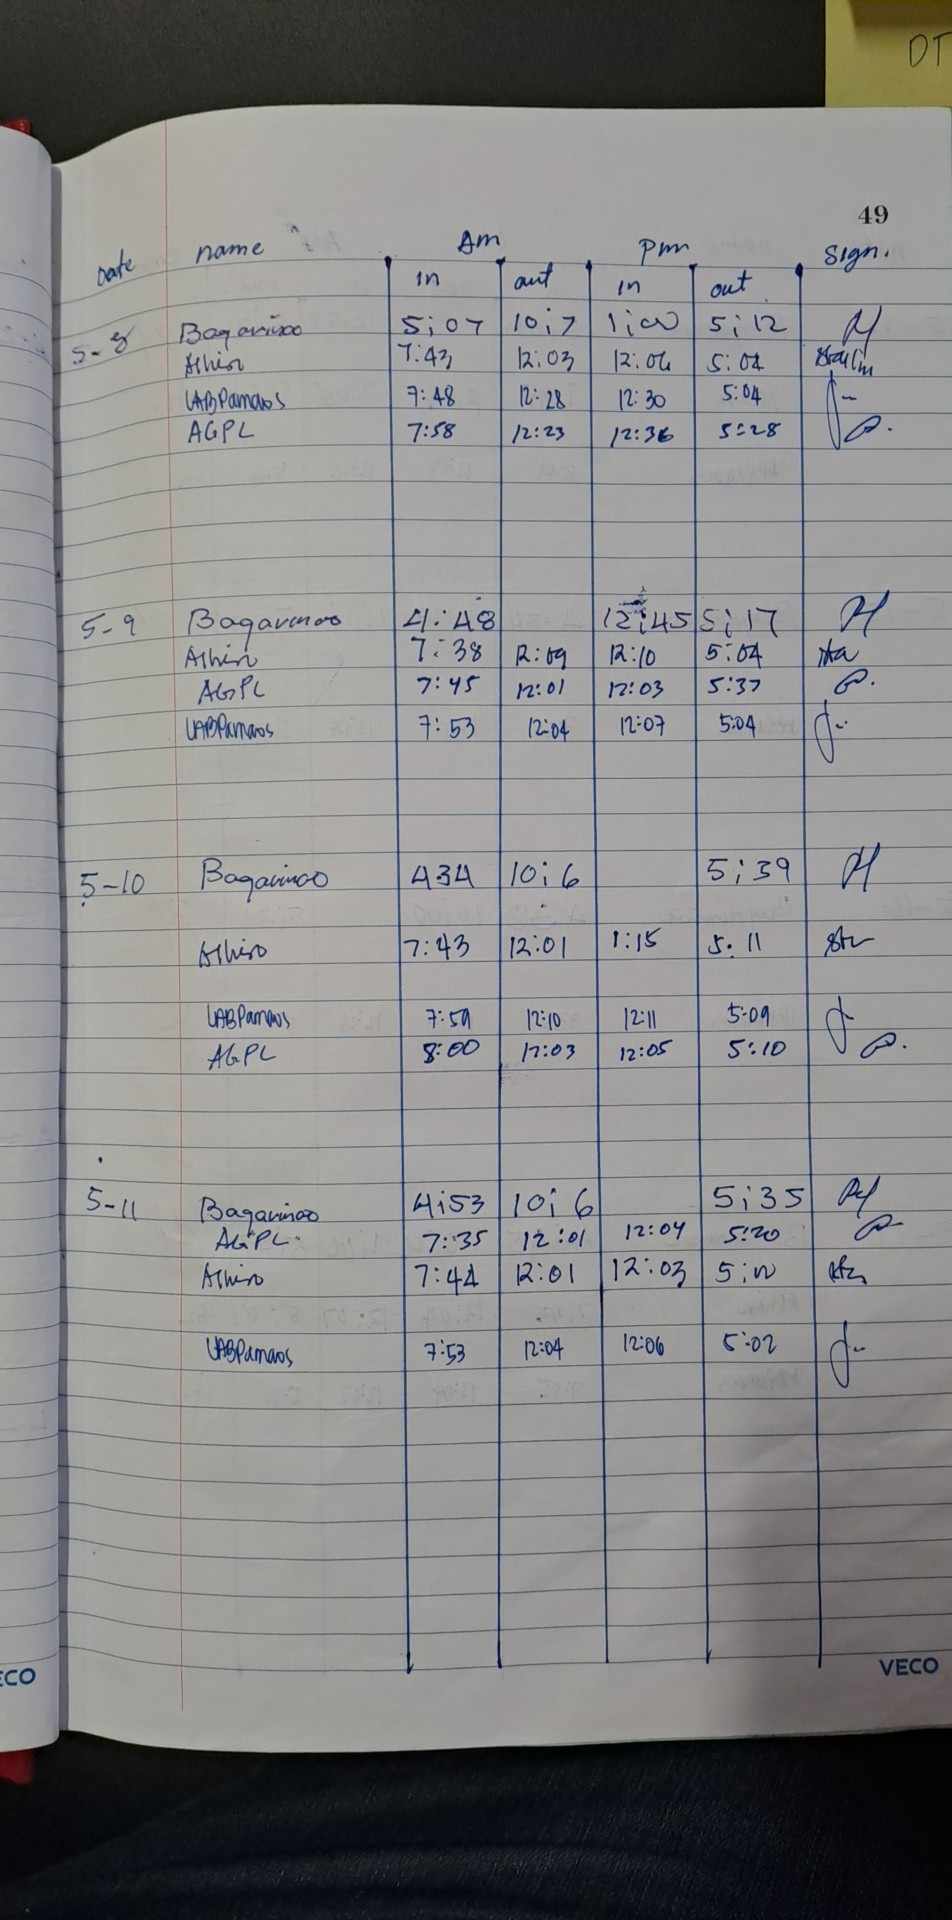 DT
49
Date name Am Pm Sign.
in out in out
5-8 Bagarinao 5:07 10:7 1:00 5:12
Alhin 7:43 12:03 12:06 5:04
LABPamaos 7:48 12:28 12:30 5:04
AGPL 7:58 12:23 12:36 5:28
5-9 Bagarinao 4:48 12:45 5:17
Alhin 7:38 12:09 12:10 5:04
AGPL 7:45 12:01 12:03 5:37
LABPamaos 7:53 12:04 12:07 5:04
5-10 Bagarinao 434 10:6 5:39
Alhin 7:43 12:01 1:15 5:11
LABPamaos 7:59 12:10 12:11 5:09
AGPL 8:00 12:03 12:05 5:10
5-11 Bagarinao 4:53 10:6 5:35
AGPL 7:35 12:01 12:04 5:20
Alhin 7:44 12:01 12:03 5:00
LABPamaos 7:53 12:04 12:06 5:02
ECO
VECO